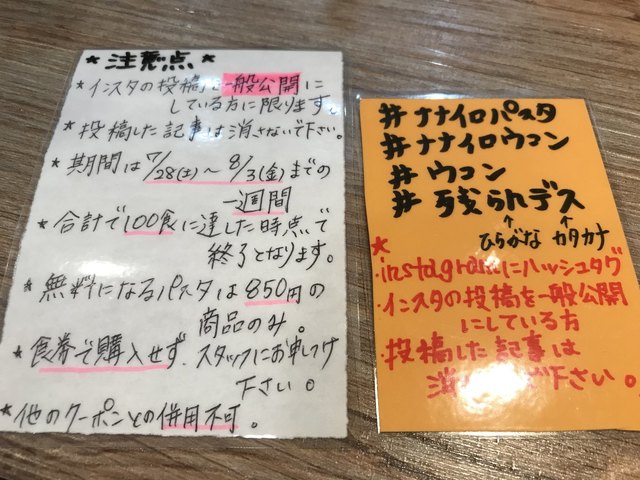 ★ 注意点 ★
★インスタの投稿を一般公開に
している方に限ります。
★投稿した記事は消さないで下さい。
★期間は7/28(土)〜8/3(金)までの
一週間
★合計で100食に達した時点で
終了となります。
★無料になるパスタは850円の
商品のみ。
★食券で購入せず、スタッフにお申しつけ
下さい。
★他のクーポンとの併用不可。
#ナナイロパスタ
#ナナイロウコン
#ウコン
#残られデス
↑ ↑
ひらがな カタカナ
★
・instagramにハッシュタグ
・インスタの投稿を一般公開
にしている方
・投稿した記事は
消 下さい。